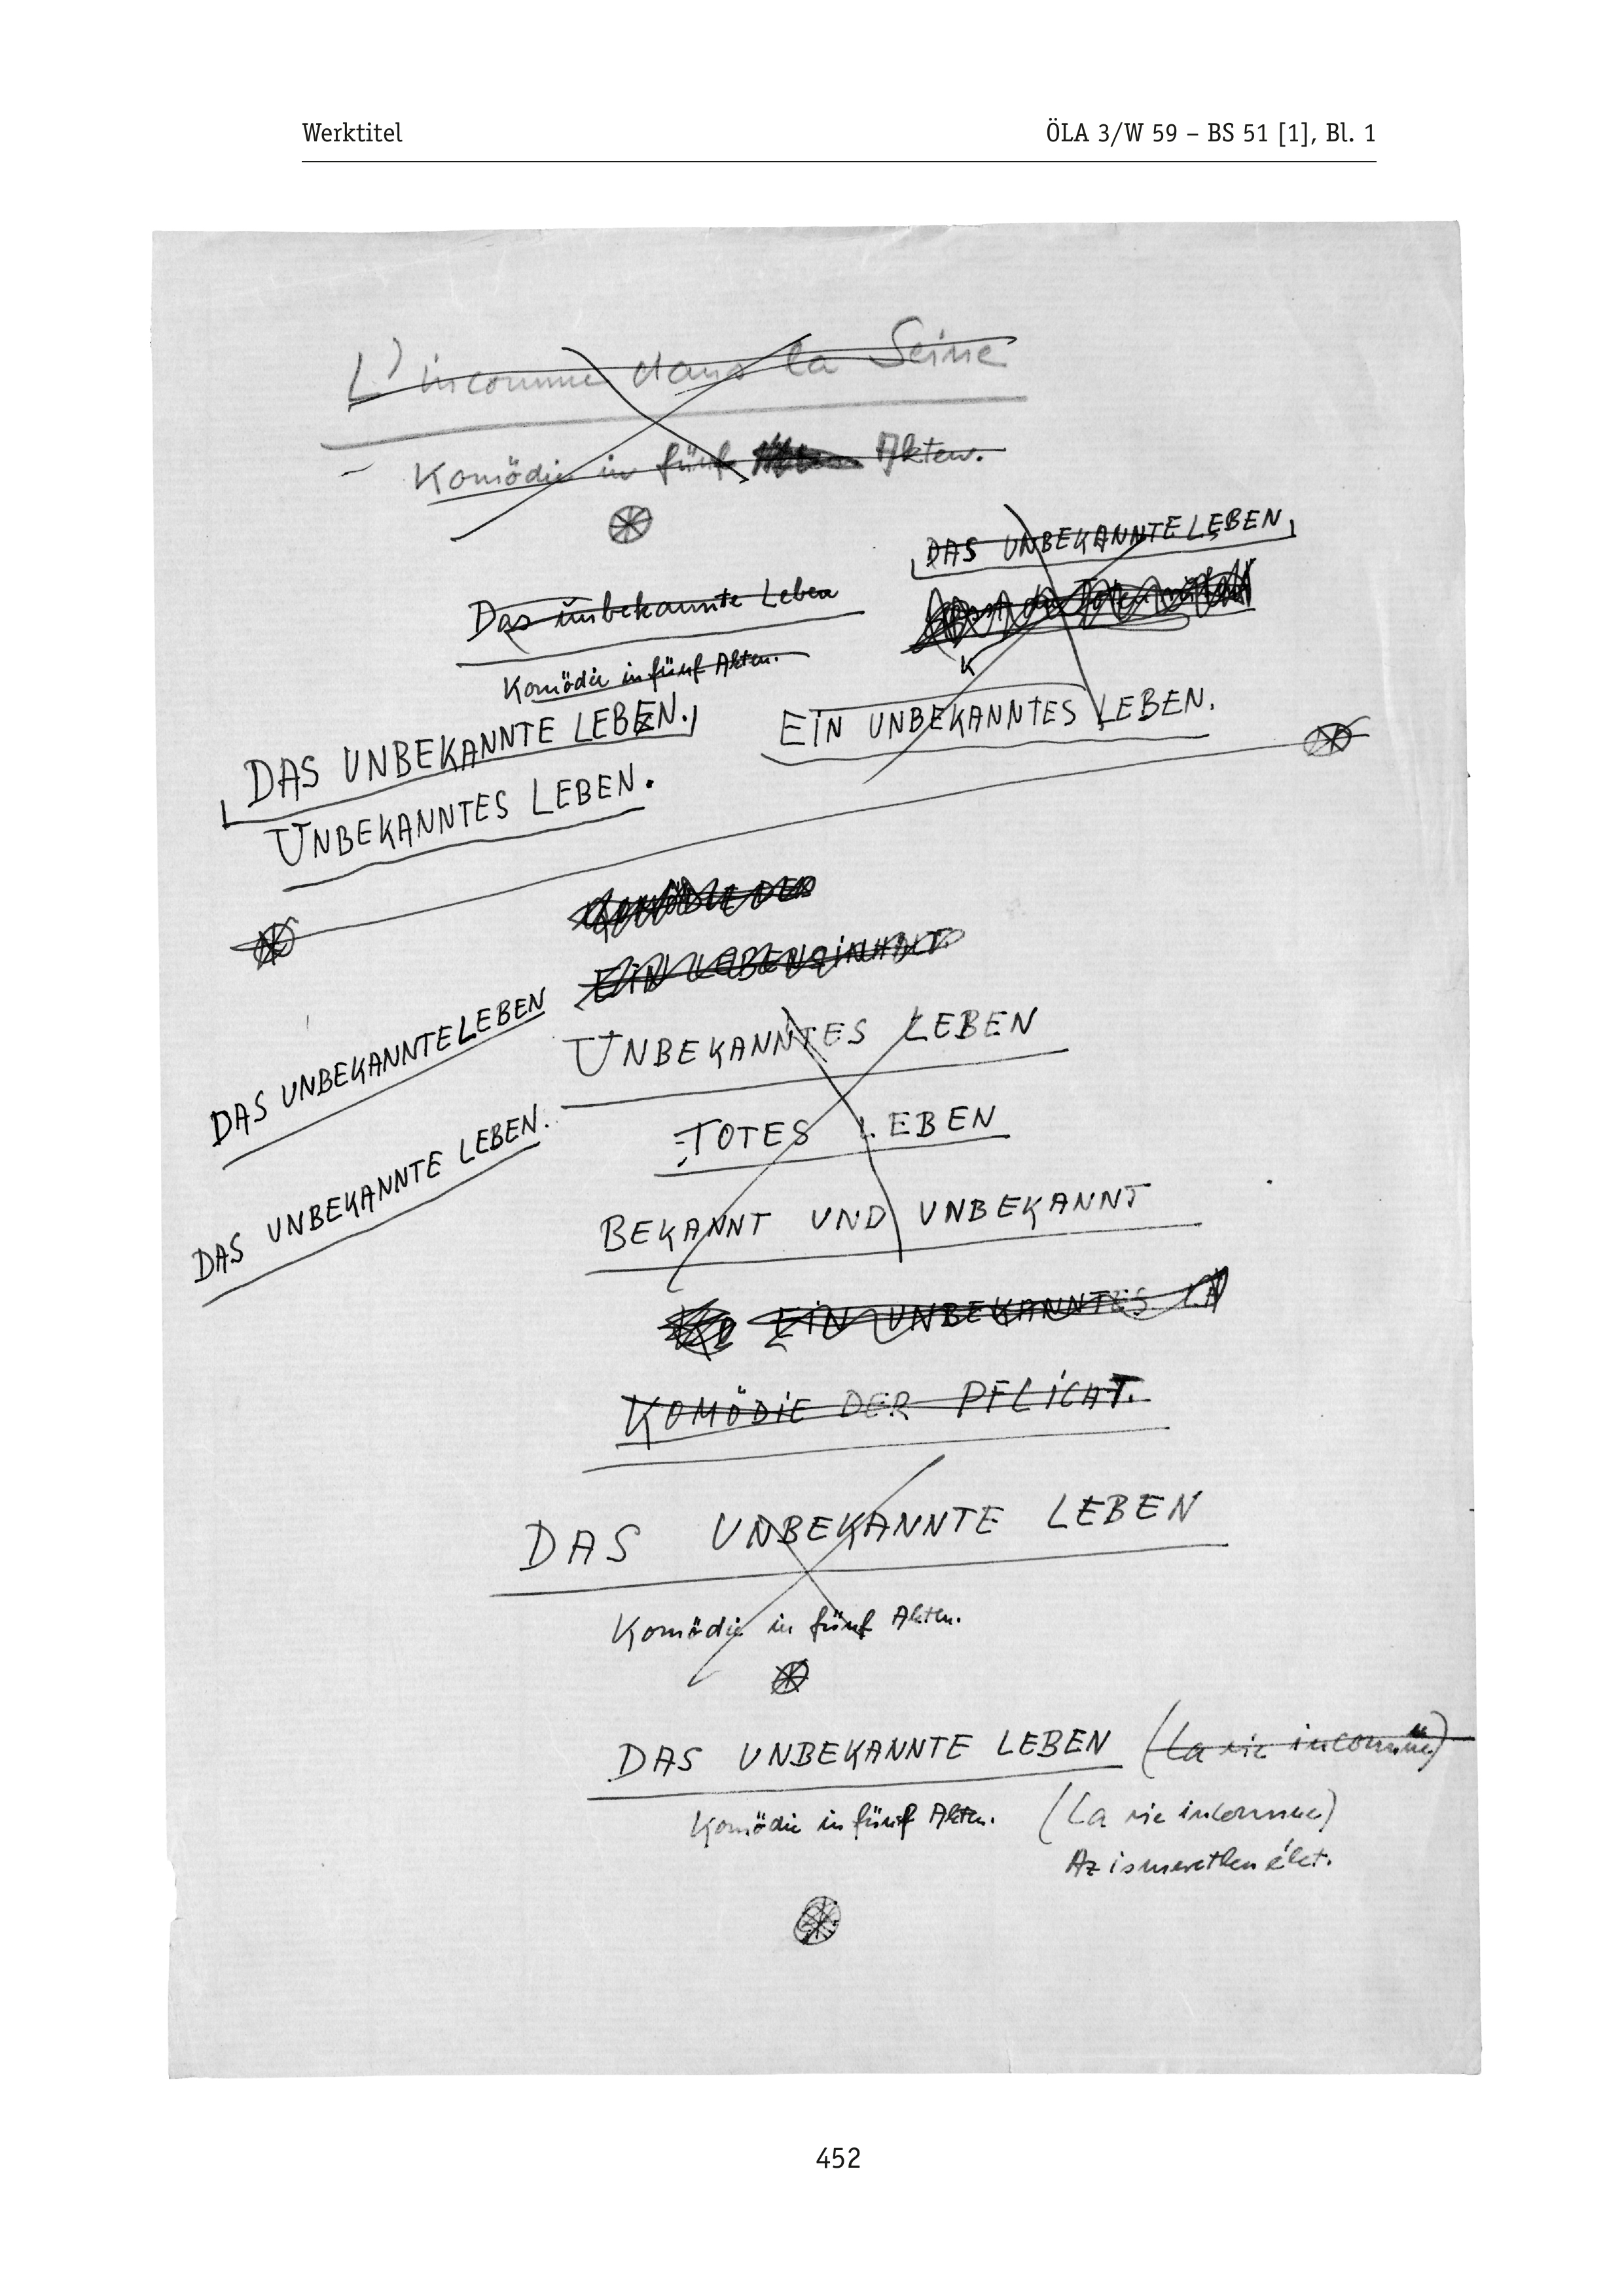 Werktitel
ÖLA 3/W 59 – BS 51 [1], Bl. 1
L'inconnue dans la Seine
Komödie in fünf Akten.
DAS UNBEKANNTE LEBEN
Das unbekannte Leben
Komödie in fünf Akten.
EIN UNBEKANNTES LEBEN.
DAS UNBEKANNTE LEBEN.
UNBEKANNTES LEBEN.
KOMÖDIE DER
EIN LEBENSINHALT
UNBEKANNTES LEBEN
DAS UNBEKANNTE LEBEN
TOTES LEBEN
DAS UNBEKANNTE LEBEN.
BEKANNT UND UNBEKANNT
EIN UNBEKANNTES
KOMÖDIE DER PFLICHT.
DAS UNBEKANNTE LEBEN
Komödie in fünf Akten.
DAS UNBEKANNTE LEBEN (La vie inconnue)
Komödie in fünf Akten. (La vie inconnue)
Az ismeretlen élet.
452